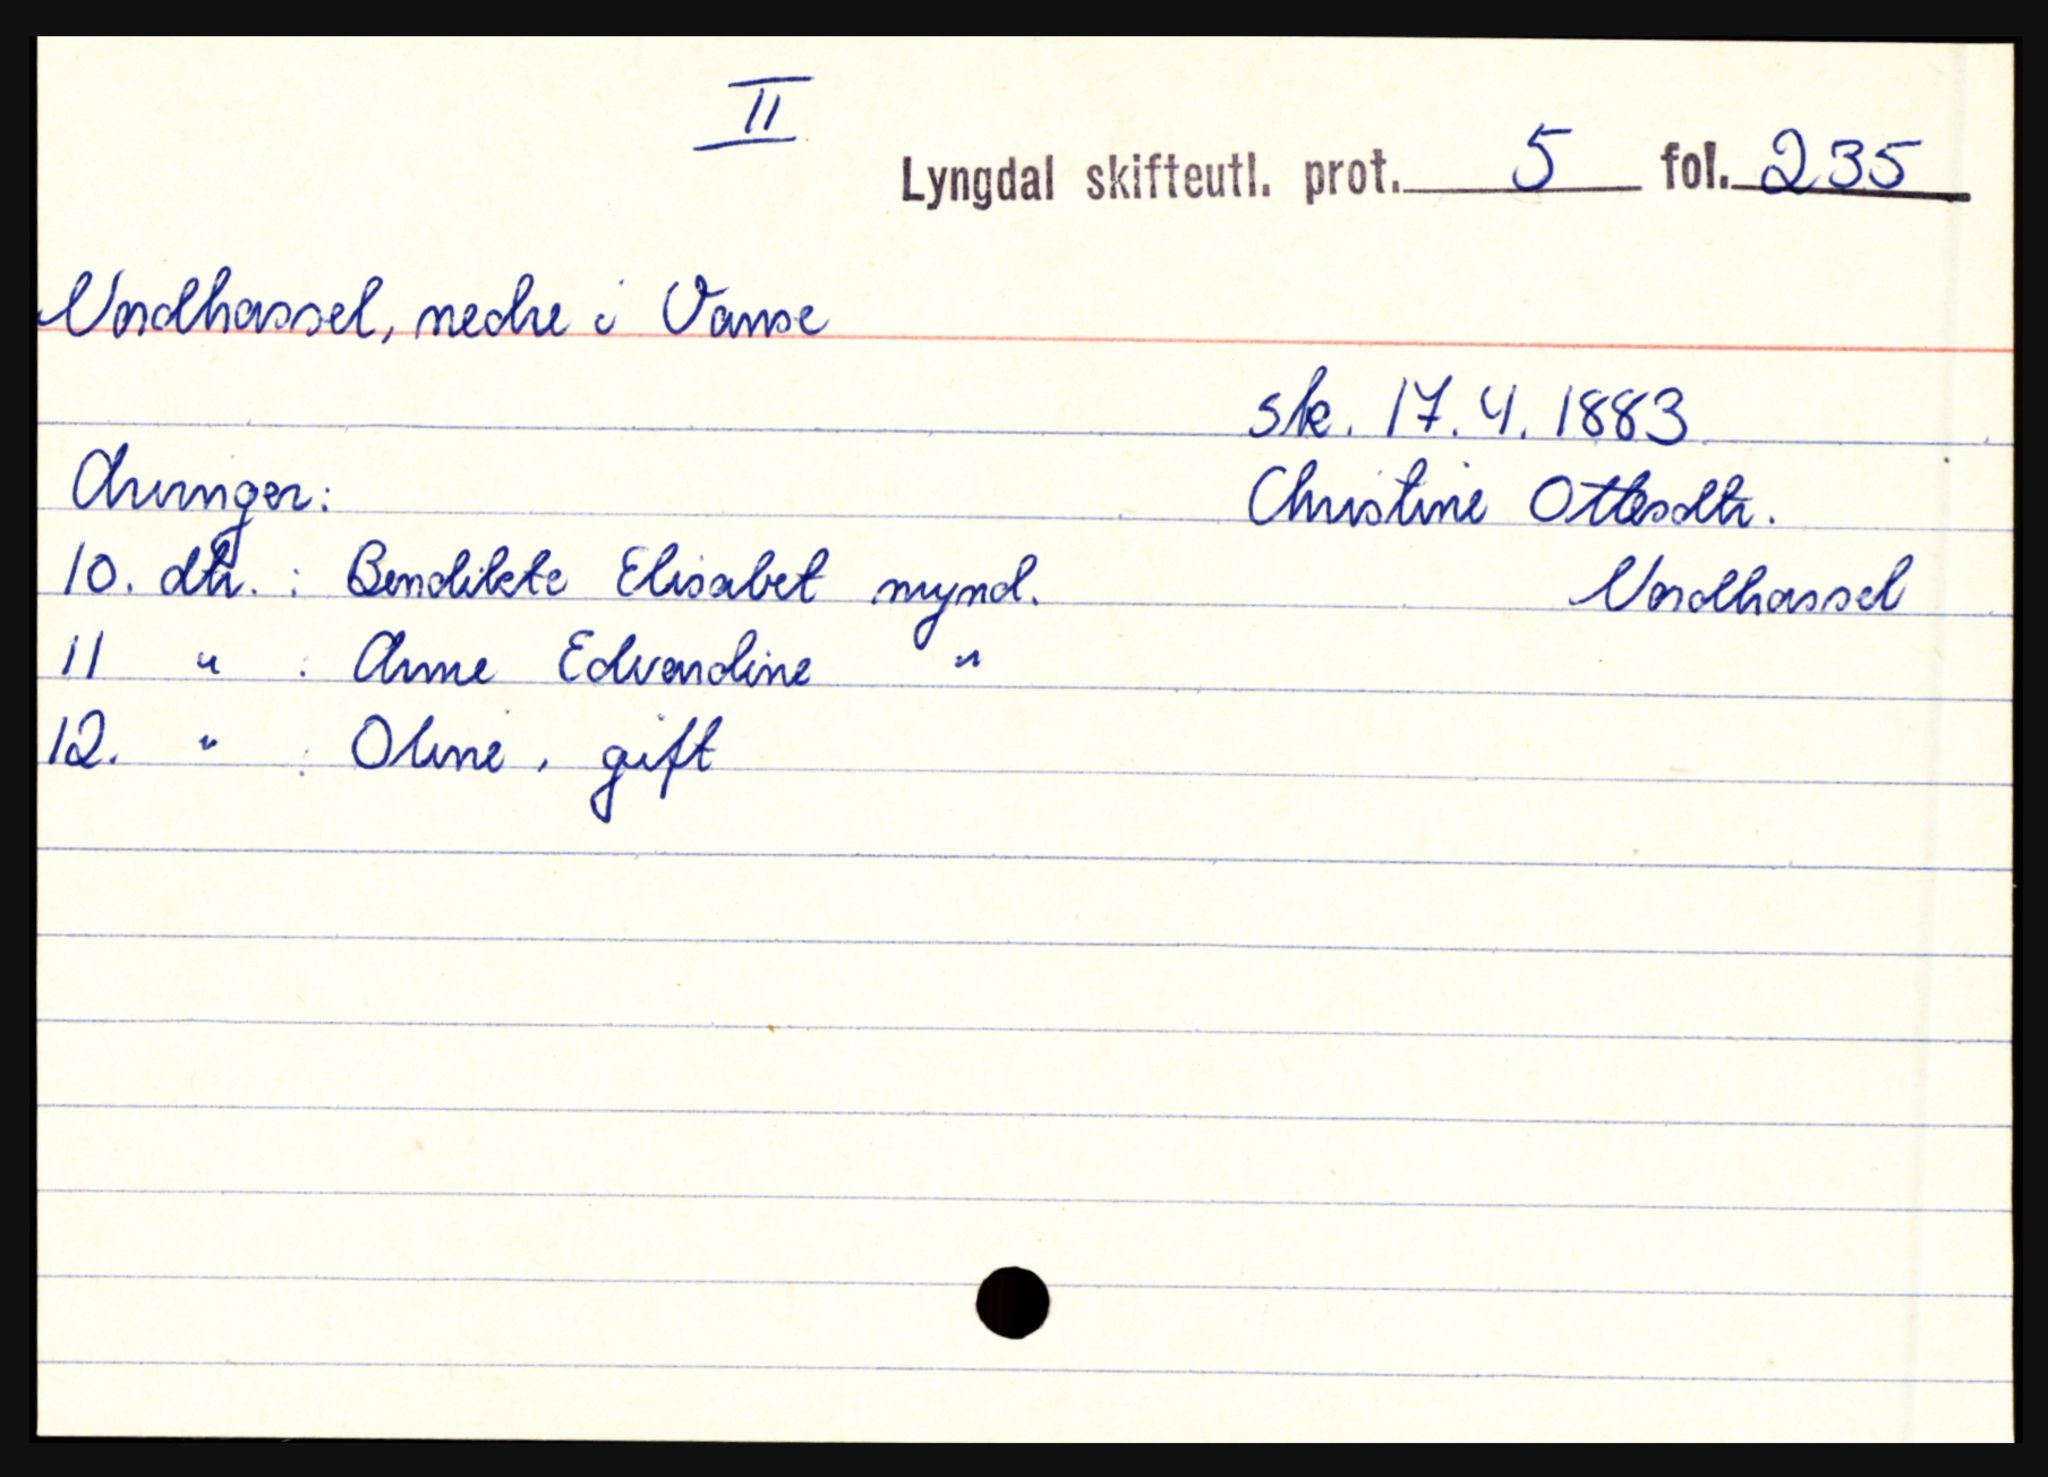 II
Lyngdal skifteutl. prot. 5 fol. 235
Nordhassel, nedre i Vanse
sk. 17.4.1883
Arvinger:
Christine Ottesdtr.
10. dtr. : Bendikte Elisabet mynd.
Nordhassel
11 " : Anne Edvardine "
12. " : Oline, gift